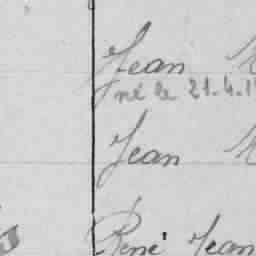 Jean
né le 21.4.1
Jean
René Jean